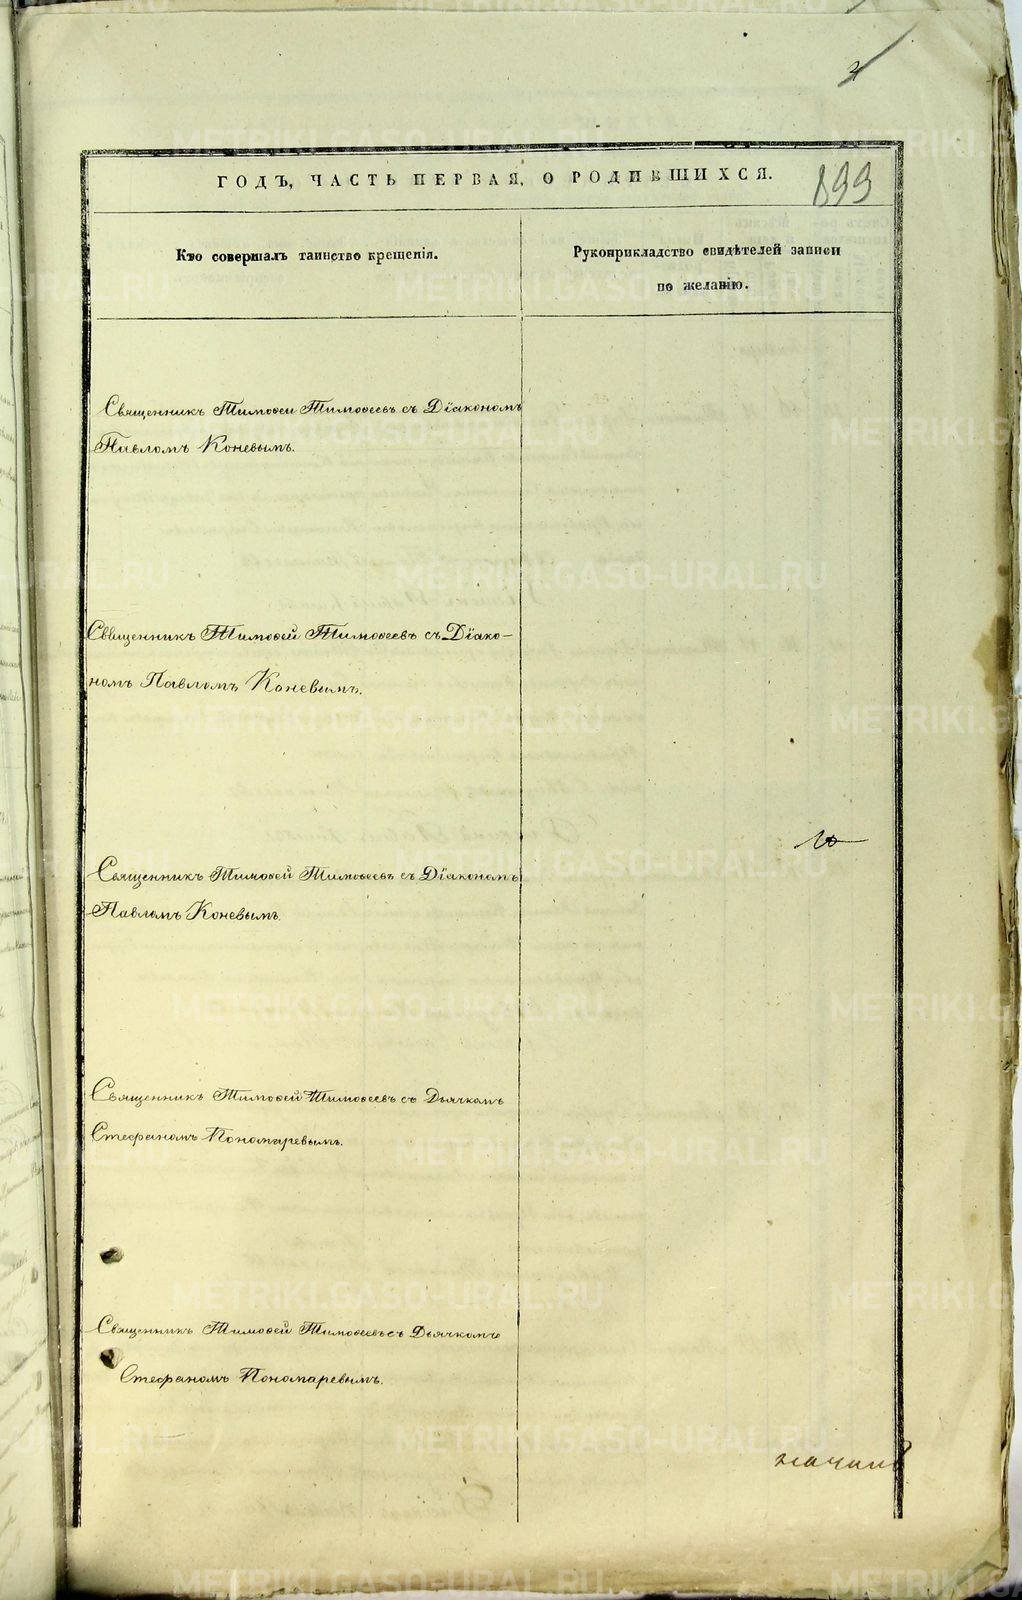 899
ГОДЪ, ЧАСТЬ ПЕРВАЯ, О РОДИВШИХСЯ.
Кто совершалъ таинство крещенія.
Рукоприкладство свидѣтелей записи
по желанію.
Священникъ Тимоѳеи Тимоѳеевъ съ Діакономъ
Павломъ Коневымъ.
Священникъ Тимоѳей Тимоѳеевъ съ Діако-
номъ Павломъ Коневымъ.
Священникъ Тимоѳей Тимоѳеевъ съ Діакономъ
Павломъ Коневымъ.
Священникъ Тимоѳей Тимоѳеевъ съ Дьячкомъ
Стефаномъ Пономаревымъ.
Священникъ Тимоѳей Тимоѳеевъ съ Дьячкомъ
Стефаномъ Пономаревымъ.
METRIKI.GASO-URAL.RU